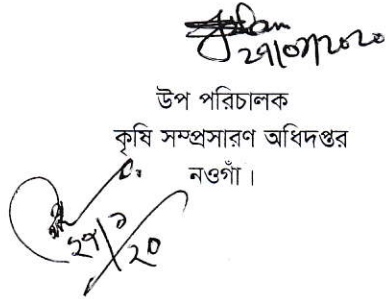 ২৭/০১/২০২০
উপ পরিচালক
কৃষি সম্প্রসারণ অধিদপ্তর
নওগাঁ।
২৭/১/২০